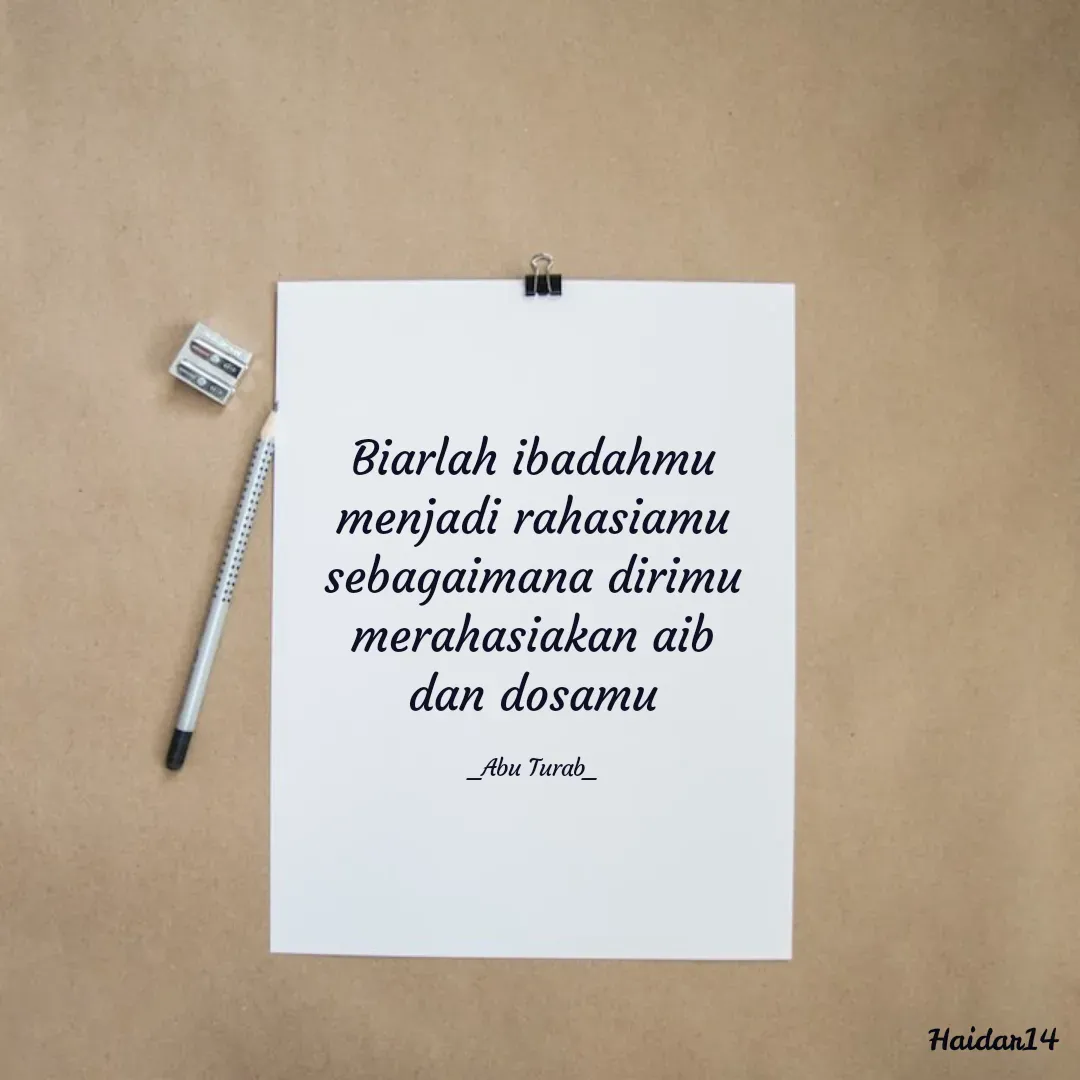 Biarlah ibadahmu
menjadi rahasiamu
sebagaimana dirimu
merahasiakan aib
dan dosamu
_Abu Turab_
Haidar14